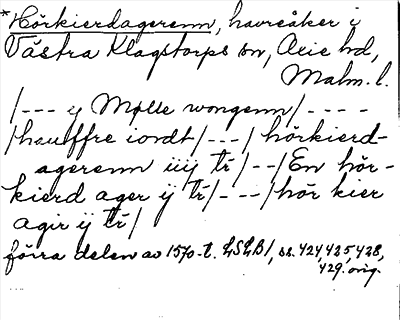 *Hörkierdagerenn, havreåker i
Västra Klagstorps sn, Oxie hd,
Malm. l.
/--- y Mølle wongenn/----
/hauffre iordt/---/ hörkierd-
agerenn iiij tr̄/--/En hör-
kierd ager ij tr̄/---/hör kier
agir ij tr̄/
förra delen av 1570-t. LSLB1, ss. 424, 425, 428,
429. orig.